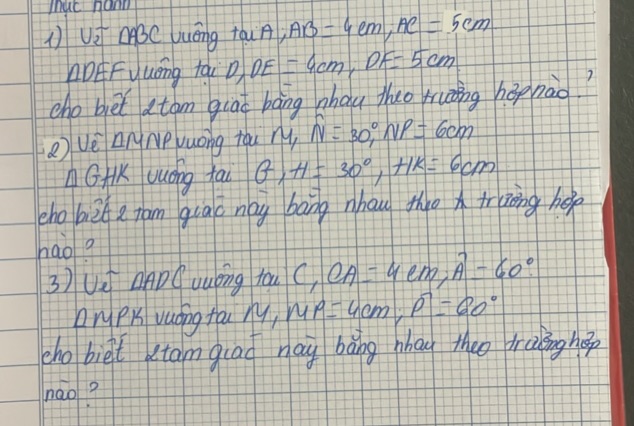 Thực hành
1) Vẽ ΔABC vuông tại A, AB = 4cm, AC = 5cm
ΔDEF vuông tại D, DE = 4cm, DF = 5cm
cho biết 2 tam giác bằng nhau theo trường hợp nào?
2) Vẽ ΔMNP vuông tại M, N̂ = 30°, NP = 6cm
ΔGHK vuông tại G, H = 30°, HK = 6cm
cho biết 2 tam giác này bằng nhau theo trường hợp
nào?
3) Vẽ ΔADC vuông tại C, CA = 4cm, Â = 60°
ΔMPK vuông tại M, MP = 4cm, P̂ = 60°
cho biết 2 tam giác này bằng nhau theo trường hợp
nào?